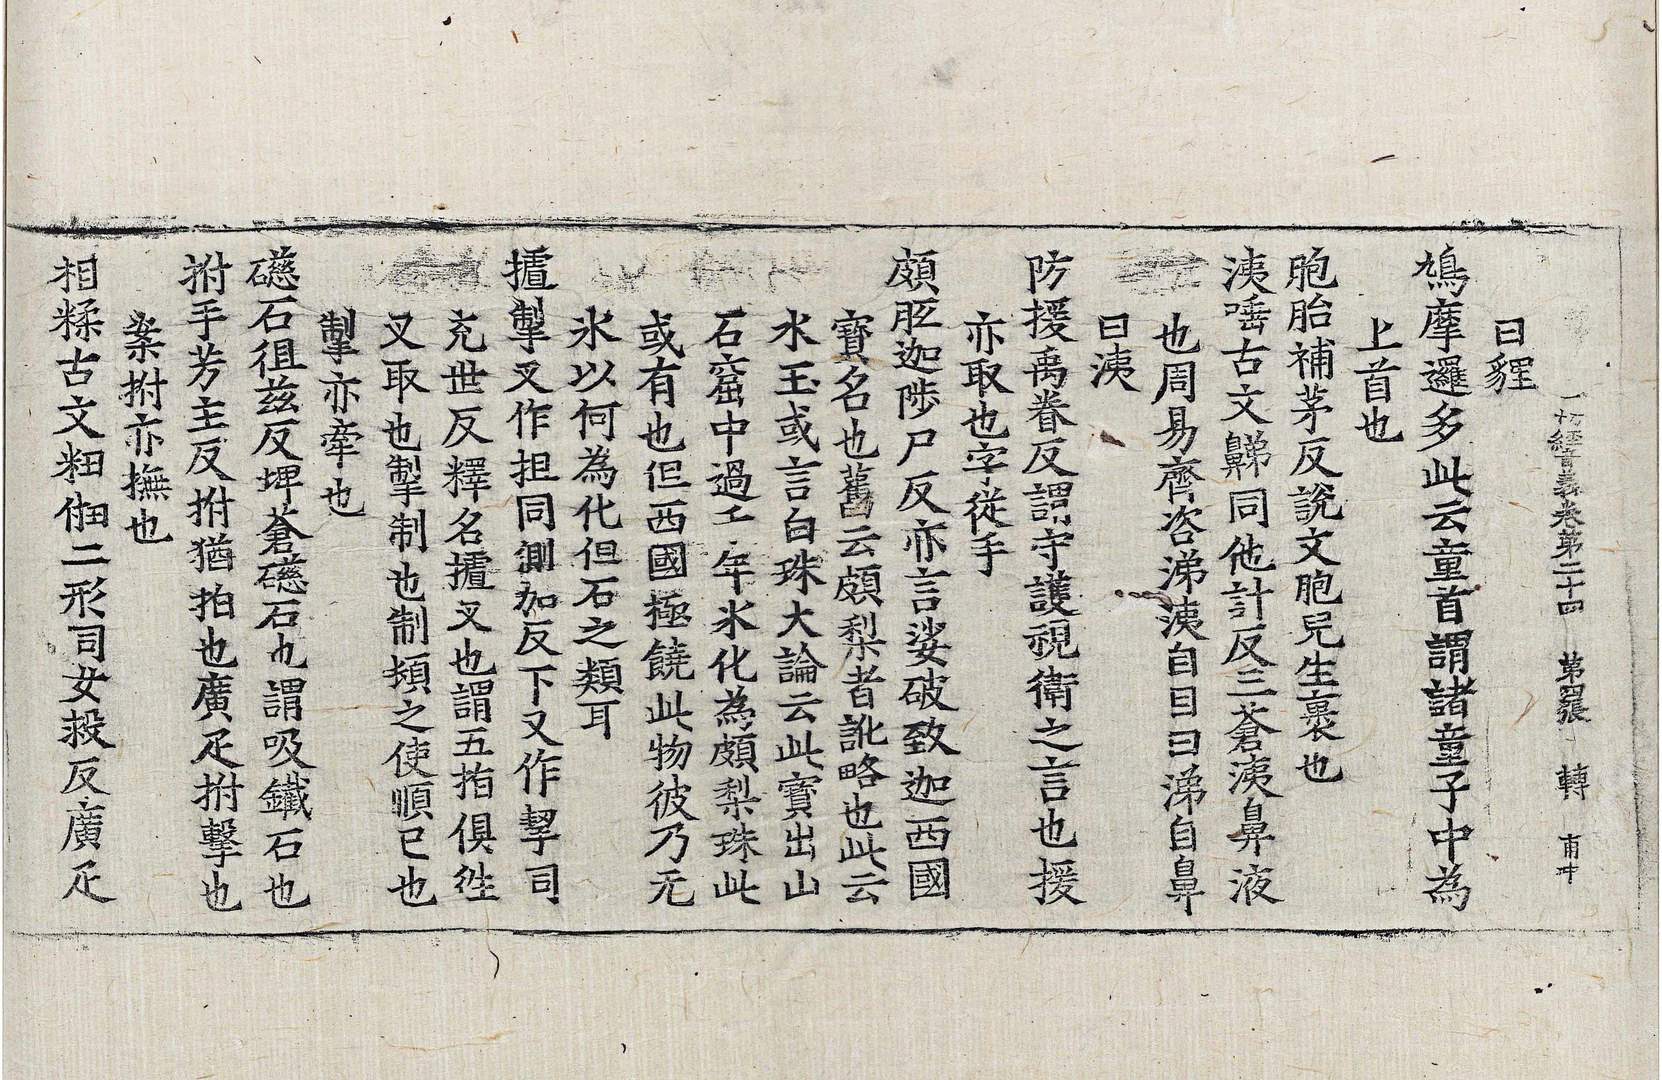 一切經音義卷第二十四 第四張 轉 甫中
曰貍
鳩摩邏多此云童首謂諸童子中為
上首也
胞胎補茅反說文胞兒生裹也
洟唾古文鵜同他計反三蒼洟鼻液
也周易齊咨涕洟自目曰涕自鼻
曰洟
防援禹眷反謂守護視衛之言也援
亦取也字從手
頗胝迦陟尸反亦言娑破致迦西國
寶名也舊云頗梨者訛略也此云
水玉或言白珠大論云此寶出山
石窟中過千年氷化為頗梨珠此
或有也但西國極饒此物彼乃无
氷以何為化但石之類耳
摣掣又作担同測加反下又作挈同
充世反釋名摣叉也謂五指俱往
叉取也掣制也制頓之使順已也
掣亦牽也
礠石徂兹反埤蒼礠石也謂吸鐵石也
拊手芳主反拊猶拍也廣疋拊擊也
案拊亦撫也
相糅古文粈㑱二形同女救反廣疋